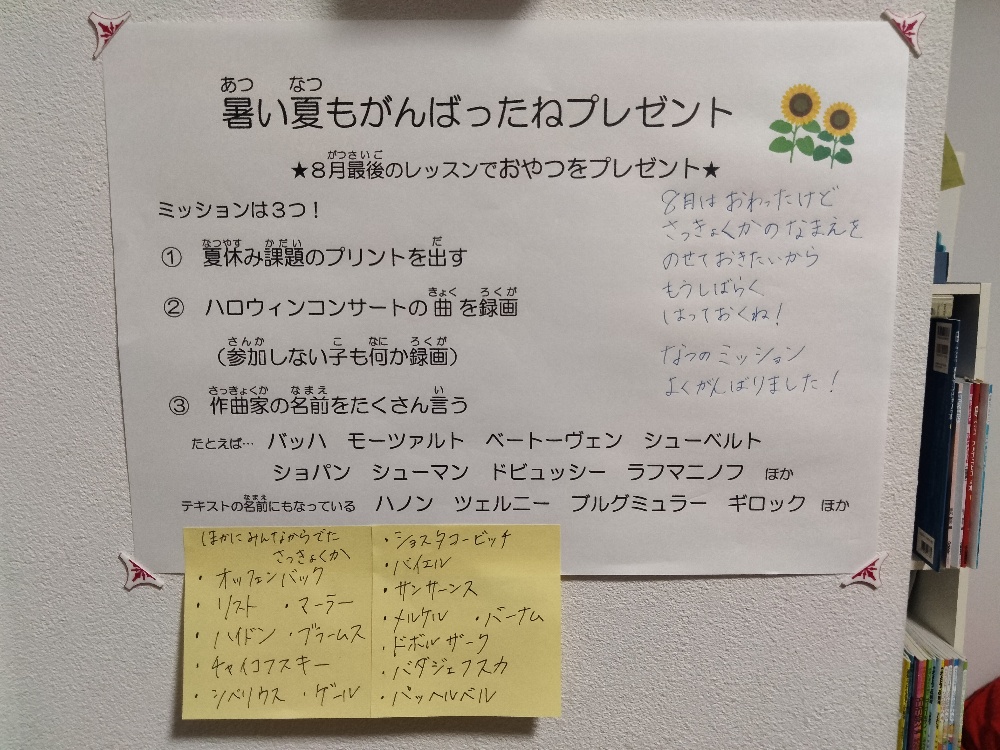 暑い夏もがんばったねプレゼント
★8月最後のレッスンでおやつをプレゼント★
ミッションは3つ！
① 夏休み課題のプリントを出す
② ハロウィンコンサートの曲を録画
（参加しない子も何か録画）
③ 作曲家の名前をたくさん言う
たとえば… バッハ モーツァルト ベートーヴェン シューベルト
ショパン シューマン ドビュッシー ラフマニノフ ほか
テキストの名前にもなっている ハノン ツェルニー ブルグミュラー ギロック ほか
8月はおわったけど
さっきょくかのなまえを
のせておきたいから
もうしばらく
はっておくね！
なつのミッション
よくがんばりました！
ほかにみんなからでた
さっきょくか
・オッフェンバック
・リスト ・マーラー
・ハイドン ・ブラームス
・チャイコフスキー
・シベリウス ・ゲール
・ショスタコービッチ
・バイエル
・サンサーンス
・メルケル ・バーナム
・ドボルザーク
・バダジェフスカ
・パッヘルベル